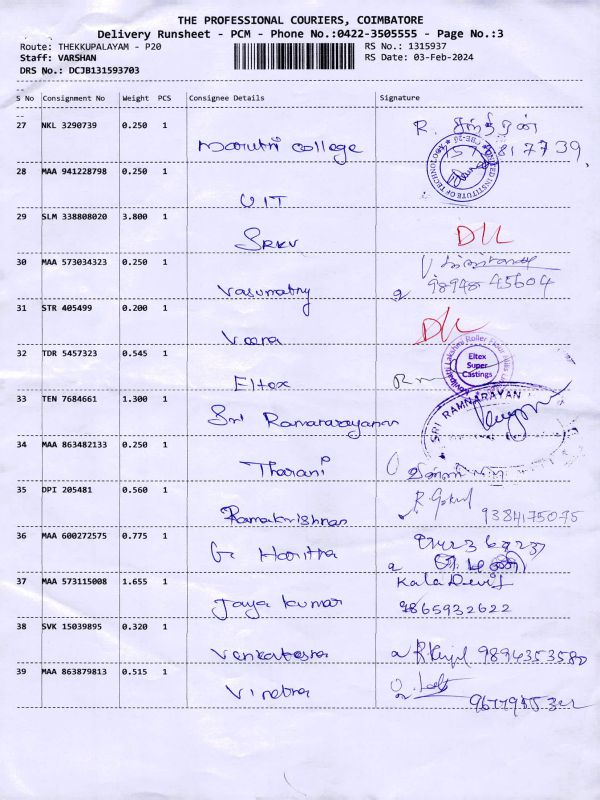 THE PROFESSIONAL COURIERS, COIMBATORE
Delivery Runsheet - PCM - Phone No.:0422-3505555 - Page No.:3
Route: THEKKUPALAYAM - P20 RS No.: 1315937
Staff: VARSHAN RS Date: 03-Feb-2024
DRS No.: DCJB131593703
S No Consignment No Weight PCS Consignee Details Signature
27 NKL 3290739 0.250 1
Maruthi College
28 MAA 941228798 0.250 1
UIT
29 SLM 338808020 3.800 1
SRKV DLL
30 MAA 573034323 0.250 1
Vasumathy 98948 45604
31 STR 405499 0.200 1
Veera
32 TDR 5457323 0.545 1
Eltex
Eltex
Super
Castings
33 TEN 7684661 1.300 1
Sri Ramanarayanan
SRI RAMNARAYAN
34 MAA 863482133 0.250 1
Tharani
35 DPI 205481 0.560 1
Ramakrishnan 9384175075
36 MAA 600272575 0.775 1
G Haritha
37 MAA 573115008 1.655 1
Kala Devi
Jaya kumar 9865932622
38 SVK 15039895 0.320 1
Venkatesha 9894353580
39 MAA 863879813 0.515 1